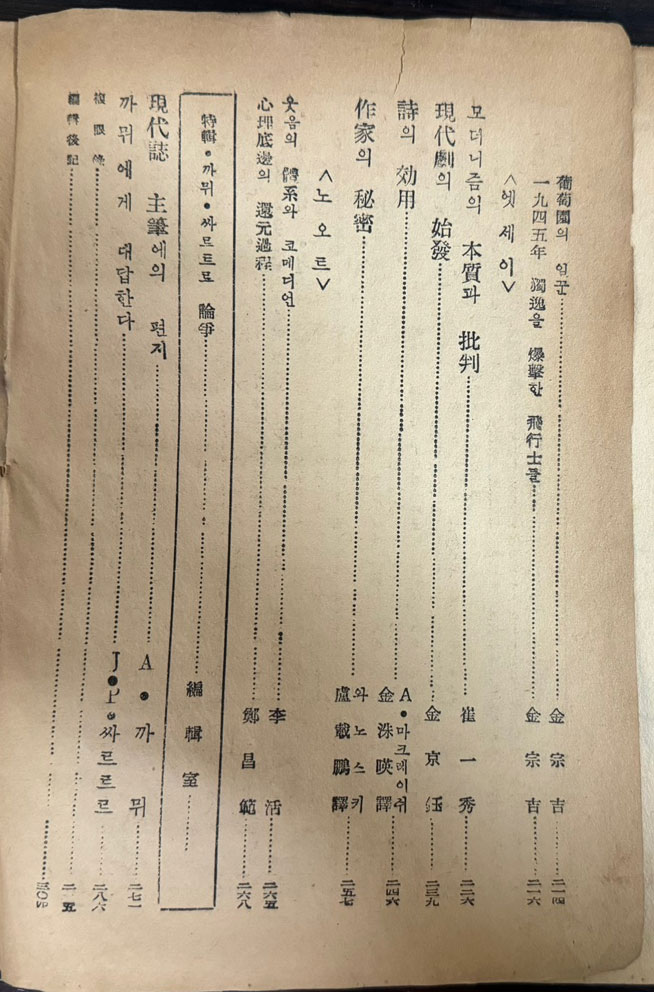 葡萄園의 일꾼……金宗吉……二一四
一九四五年 獨逸을 爆擊한 飛行士들……金宗吉……二一六
<엣세이>
모더니즘의 本質과 批判……崔一秀……二二六
現代劇의 始發……金京鈺……二三九
詩의 効用……A•마크레이쉬 金洙暎譯……二四六
作家의 秘密……와노스키 盧 鵬譯……二五七
<노오트>
웃음의 體系와 코메디언……李活……二六五
心理底邊의 還元過程……鄭昌範……二六八
特輯•까뮈•싸르트르 論爭……編輯室……
現代誌 主筆에의 편지……A•까뮈……二七一
까뮈에게 대답한다……J•P•싸르르르……二八六
複眼……
編輯後記……